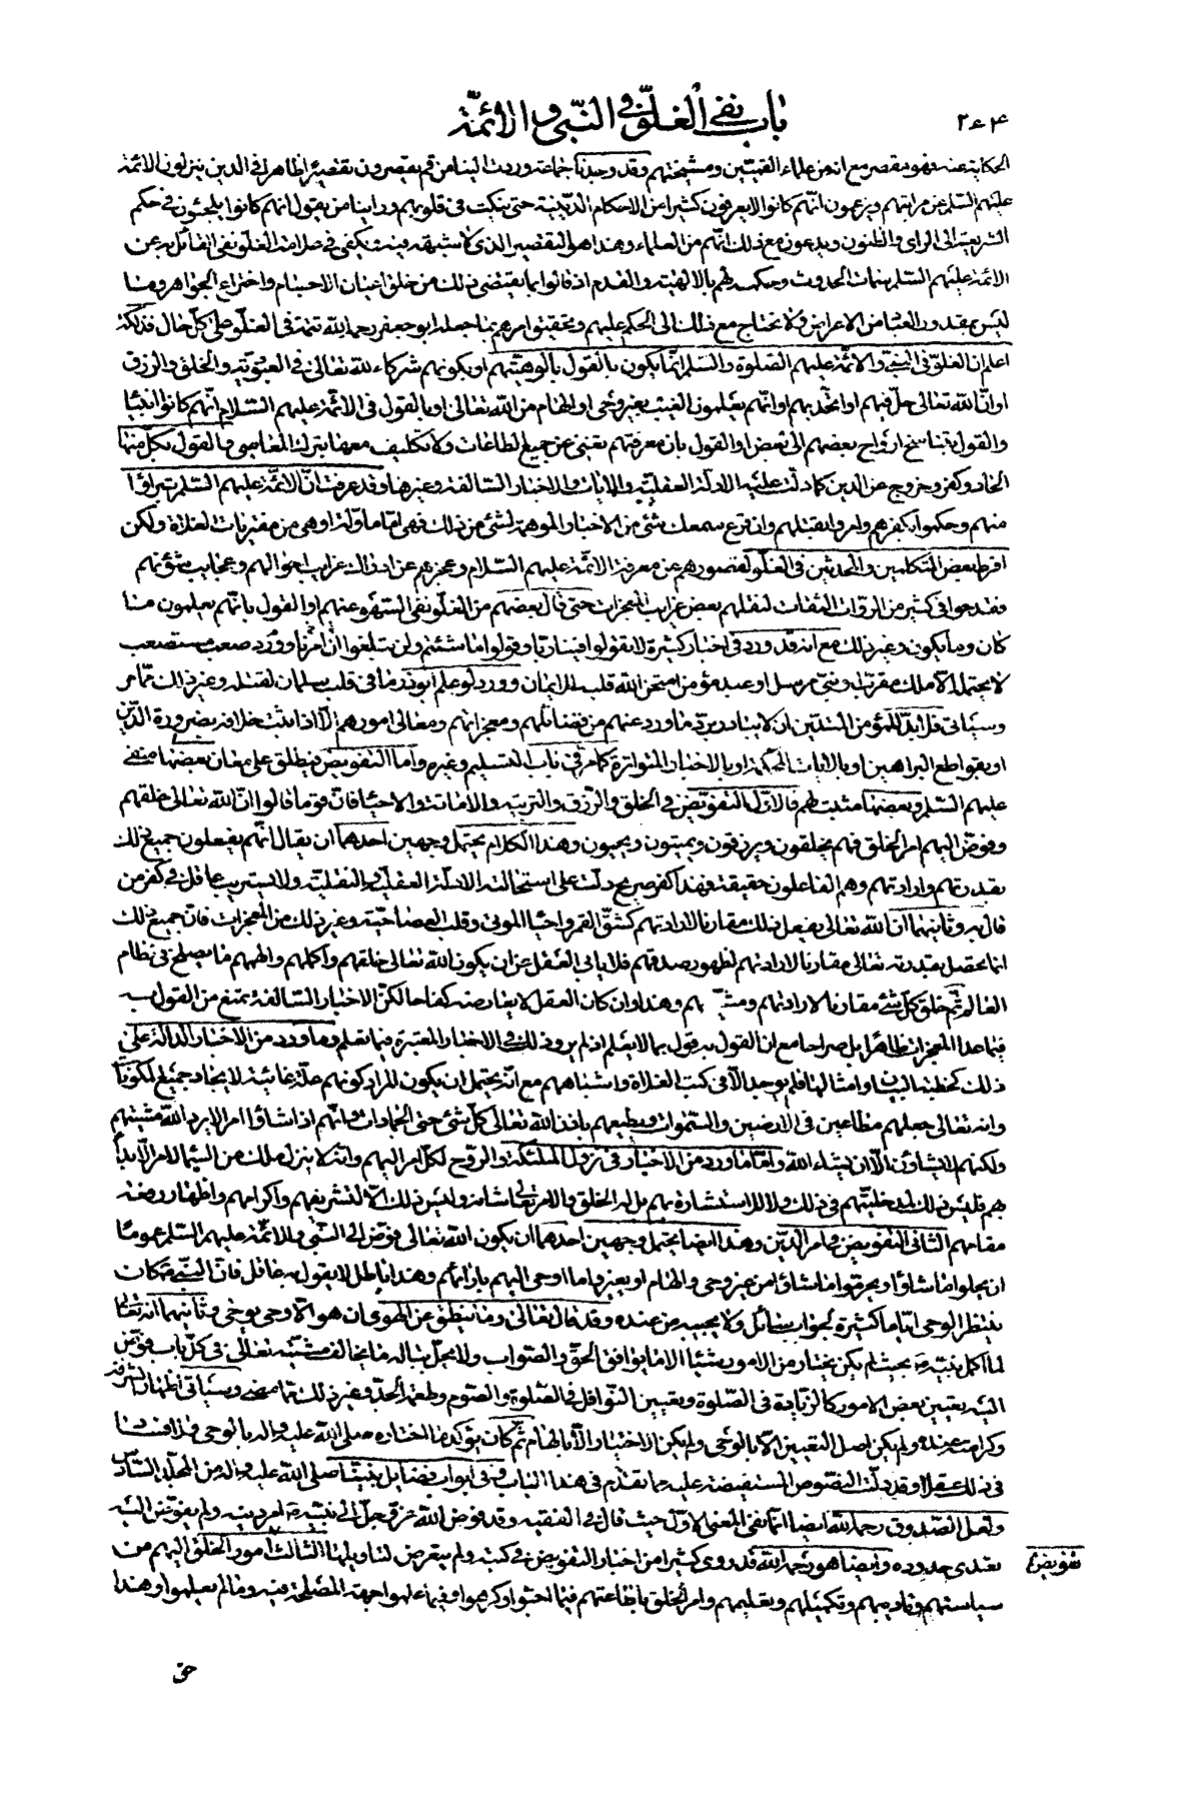 ٢٦٤
باب نفي الغلوّ في النبي و الائمّة
الحكاية عنه فهو مقصر مع انه من علماء القميّين ومشيختهم وقد وجدنا جماعة وردت الينا من قم يقصرون تقصيرا ظاهرا في الدين ينزلون الائمة
عليهم السّلم عن مراتبهم ويزعمون انّهم كانوا لا يعرفون كثيرا من الاحكام الدّينيّة حتى ينكت في قلوبهم وراينا من يقول انهم كانوا يلجئون في حكم
الشريعة الى الراى والظنون ويدعون مع ذلك انّهم من العلماء وهذا هو التقصير الذى لا شبهة فيه ويكفى في علامة الغلوّ نفى القائل به عن
الائمة عليهم السّلم سمات الحدوث وحكمه لهم بالالهيّة والقدم اذ قالوا بما يقتضى ذلك من خلق اعيان الاجسام واختراع الجواهر وما
ليس بمقدور العباد من الاعراض ولا يحتاج مع ذلك الى الحكم عليهم وتحقيق امرهم بما جعله ابو جعفر رحمه الله سمة في الغلو على كل حال فذلكة
اعلم ان الغلوّ في النبيّ والائمّة عليهم الصّلوة والسّلم انّما يكون بالقول بالوهيّتهم او بكونهم شركاء لله تعالى في العبوديّة والخلق والرزق
او انّ الله تعالى حلّ فيهم او اتّحد بهم او انّهم يعلمون الغيب بغير وحى او الهام من الله تعالى او بالقول في الائمّة عليهم السّلام انّهم كانوا انبياء
والقول بتناسخ ارواح بعضهم الى بعض او القول بان معرفتهم تغنى عن جميع الطاعات ولا تكليف معها بترك المعاصى والقول بكلّ منها
الحاد وكفر وخروج عن الدين كما دلّت عليه الادلّة العقليّة والايات والاخبار السّالفة وغيرها وقد عرفت انّ الائمّة عليهم السّلم تبرّاوا
منهم وحكموا بكفرهم وامروا بقتلهم وان قرع سمعك شئ من الاخبار الموهمة لشئ من ذلك فهى امّا ماوّلة او هى من مفتريات الغلاة ولكن
افرط بعض المتكلمين والمحدثين في الغلوّ لقصورهم عن معرفة الائمّة عليهم السّلام وعجزهم عن ادراك غرايب احوالهم وعجايب شؤنهم
فقدحوا في كثير من الروات الثقات لنقلهم بعض غرايب المعجزات حتى قال بعضهم من الغلوّ نفى السّهو عنهم او القول بانّهم يعلمون ما
كان وما يكون وغير ذلك مع انه قد ورد في اخبار كثيرة لا تقولوا فينا ربّا وقولوا ما شئتم ولن تبلغوا انّ امرنا وورد صعب مستصعب
لا يحتمله الا ملك مقرّب او نبيّ مرسل او عبد مؤمن امتحن الله قلبه للايمان وورد لو علم ابوذر ما في قلب سلمان لقتله وغير ذلك ممّا مر
وسيأتى فلا بدّ للمؤمن المتديّن ان لا يبادر بردّ ما ورد عنهم من فضائلهم ومعجزاتهم ومعالى امورهم الّا اذا ثبت خلافه بضرورة الدّين
او بقواطع البراهين او بالايات المحكمة او بالاخبار المتواترة كما مرّ في باب التسليم وغيره وامّا التفويض فيطلق على معان بعضها منفىّ
عليهم السّلم وبعضها مثبت لهم فالاوّل التفويض في الخلق والرّزق والتربية والاماتة والاحياء فانّ قوما قالوا انّ الله تعالى خلقهم
وفوّض اليهم امر الخلق فهم يخلقون ويرزقون ويميتون ويحيون وهذا الكلام يحتمل وجهين احدهما ان يقال انّهم يفعلون جميع ذلك
بقدرتهم وارادتهم وهم الفاعلون حقيقة فهذا كفر صريح دلت على استحالته الادلّة العقليّة والنقليّة ولا يستريب عاقل في كفر من
قال به وثانيهما انّ الله تعالى يفعل ذلك مقارنا لارادتهم كشقّ القمر واحياء الموتى وقلب العصا حيّة وغير ذلك من المعجزات فانّ جميع ذلك
انّما تحصل بقدرته تعالى مقارنا لارادتهم لظهور صدقهم فلا يابى العقل عن ان يكون الله تعالى خلقهم واكملهم والهمهم ما يصلح في نظام
العالم ثمّ خلق كلّ شئ مقارنا لارادتهم ومشيّتهم وهذا وان كان العقل لا يعارضه كفاحا لكنّ الاخبار السّالفة تمنع من القول به
فيما عدا المعجزات ظاهرا بل صراحا مع ان القول به قول بما لا يعلم اذ لم يرد ذلك في الاخبار المعتبرة فيما نعلم وما ورد من الاخبار الدالة على
ذلك كخطبة البيان وامثالها فلم يوجد الّا في كتب الغلاة واشباههم مع انّه يحتمل ان يكون المراد كونهم علّة غائيّة لايجاد جميع المكوّنات
وانه تعالى جعلهم مطاعين في الارضين والسّموات ويطيعهم باذن الله تعالى كلّ شئ حتى الجمادات وانّهم اذا شاؤا امرا لا يرد الله مشيّتهم
ولكنهم لا يشاؤن الّا ان يشاء الله وامّا ما ورد من الاخبار في نزول الملئكة والروح لكلّ امر اليهم وانّه لا ينزل ملك من السّماء لامر الّا بدأ
بهم فليس ذلك لمدخليّتهم في ذلك ولا للاستشارة بهم بل له الخلق والامر تعالى شانه وليس ذلك الّا لتشريفهم واكرامهم واظهار رفعة
مقامهم الثانى التفويض في امر الدّين وهذا ايضا يحتمل وجهين احدهما ان يكون الله تعالى فوّض الى النّبي والائمّة عليهم السّلم عموما
ان يحلوا ما شاؤا ويحرموا ما شاؤا من غير وحى والهام او يغيروا ما اوحى اليهم بارائهم وهذا باطل لا يقول به عاقل فانّ النبيّ ص كان
ينتظر الوحى ايّاما كثيرة لجواب سائل ولا يجيبه من عنده وقد قال تعالى وما ينطق عن الهوى ان هو الّا وحى يوحى وثانيهما انّه تعالى
لما اكمل نبيّه ص بحيث لم يكن يختار من الامور شيئا الا ما يوافق الحقّ والصّواب ولا يحلّ بباله ما يخالف مشيّته تعالى في كلّ باب فوّض
اليه تعيين بعض الامور كالزّيادة في الصّلوة وتعيين النّوافل في الصّلوة والصّوم وطعمة الجدّ وغير ذلك ممّا مضى وسيأتى اظهارا لشرفه
وكرامته عنده ولم يكن اصل التعيين الّا بالوحى ولم يكن الاختيار الّا بالهام ثمّ كان يؤكد ما اختاره صلى الله عليه واله بالوحى فلا فساد
في ذلك عقلا وقد دلّت النصوص المستفيضة عليه ممّا تقدّم في هذا الباب وفي ابواب فضايل نبيّنا صلى الله عليه واله من المجلّد السّادس
ولعل الصّدوق رحمه الله ايضا انّما نفى المعنى الاوّل حيث قال في الفقيه وقد فوّض الله عزّ وجلّ الى نبيّه ص امر دينه ولم يفوّض اليه
تعدى حدوده وايضا هو رحمه الله قد روى كثيرا من اخبار التفويض في كتبه ولم يتعرض لتاويلها الثالث امور الخلق اليهم من
تفويض
سياستهم وتاديبهم وتكميلهم وتعليمهم وامر الخلق باطاعتهم فيما احبّوا وكرهوا وفيما علموا جهة المصلحة فيه وما لم يعلموا وهذا
حق